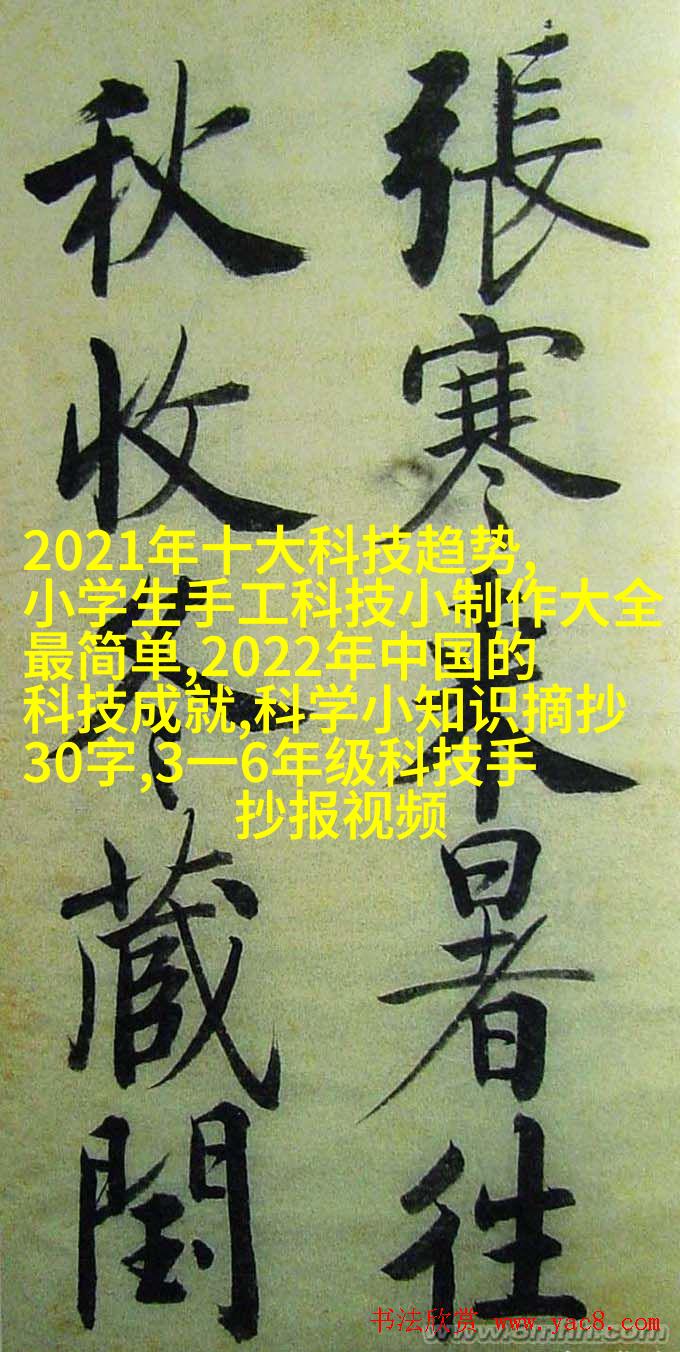 張寒来暑往
秋收冬藏閏
2021年十大科技趋势,
小学生手工科技小制作大全
最简单,2022年中国的
科技成就,科学小知识摘抄
30字,3一6年级科技手
抄报视频
书法欣赏 www.yac8.com